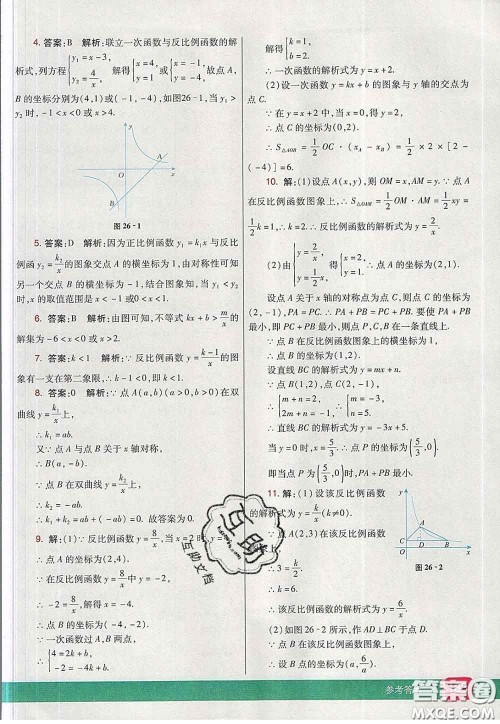 4. 答案:B 解析:联立一次函数与反比例函数的解
析式,列方程{y₁=x-3, y₂=4/x, 解得{x=4, y=1 或{x=-1, y=-4, 故点 A,
B 的坐标分别为(4,1)或(-1,-4),如图26-1,当 y₁>
y₂ 时,-1<x<0 或 x>4.
图 26-1
5. 答案:D 解析:因为正比例函数 y₁=k₁x 与反比
例函 y₂=k₂/x 的图象交点 A 的横坐标为 1,由对称性可知
另一个交点 B 的横坐标为-1,结合图象知,当 y₁>y₂
时,x 的取值范围是 x<-1 或 0<x<1.
6. 答案:B 解析:由图可知,不等式 kx+b>m/x 的
解集为-6<x<0 或 x>2.
7. 答案:k<1 解析:∵反比例函数 y=(k-1)/x 的图
象有一支在第二象限,∴k-1<0,即 k<1.
8. 答案:0 解析:∵点 A(a,b)(a>0,b>0)在双
曲线 y=k₁/x 上,
∴k₁=ab.
又∵点 A 与点 B 关于 x 轴对称,
∴B(a,-b).
∵点 B 在双曲线 y=k₂/x 上,
∴k₂=-ab.
∴k₁+k₂=ab+(-ab)=0. 故答案为 0.
9. 解:(1)∵反比例函数 y=8/x,当 x=2 时,y=
∴点 A 的坐标为(2,4).
∵点 B 在反比例函数 y=8/x 的图象上,
∴-2=8/x,解得 x=-4.
∴点 B 的坐标为(-4,-2).
∵一次函数过 A,B 两点,
∴{4=2k+b, -2=-4k+b,
解得{k=1, b=2.
∴一次函数的解析式为 y=x+2.
(2)设一次函数 y=kx+b 的图象与 y 轴的交点为
点 C.
∵在 y=x+2 中,当 x=0 时,y=2,
∴点 C 的坐标为(0,2).
∴S△AOB=1/2 OC·(xA-xB)=1/2×2×[2-
(-4)]=6.
10. 解:(1)设点 A(x,y),则 OM=x,AM=y. ∵点 A
在反比例函数图象上,∴S△OAM=1/2 OM·AM=1/2 xy=
1/2 k=1. ∴k=2. ∴反比例函数的解析式为 y=2/x.
(2)由{y=1/2 x, y=2/x, 解得{x=2, y=1. ∴点 A 的坐标为(2,1).
设点 A 关于 x 轴的对称点为点 C,则点 C 的坐标为
(2,-1),PA=PC. ∴PA+PB=PC+PB. 要使 PA+PB
最小,即 PC+PB 最小,则点 P,B,C 在一条直线上.
∵点 B 在反比例函数图象上的横坐标为 1,
∴点 B 的坐标为(1,2).
设直线 BC 的解析式为 y=mx+n.
∵点 B(1,2),点 C(2,-1),
∴{m+n=2, 2m+n=-1, ∴{m=-3, n=5.
∴直线 BC 的解析式为 y=-3x+5.
当 y=0 时,x=5/3. ∴点 P 的坐标为(5/3,0).
即当点 P 为(5/3,0)时,PA+PB 最小.
11. 解:(1)设该反比例函数
的解析式为 y=k/x(k≠0).
∵点 A(2,3)在该反比例函数
图象上,
∴3=k/2. ∴k=6.
∴该反比例函数的解析式为 y=6/x.
图 26-2
(2)如图 26-2 所示,作 AD⊥BC 于点 D.
∵点 B 在反比例函数 y=6/x 图象上,
互助
互助文档
参考答
答案圈
MXQE.COM